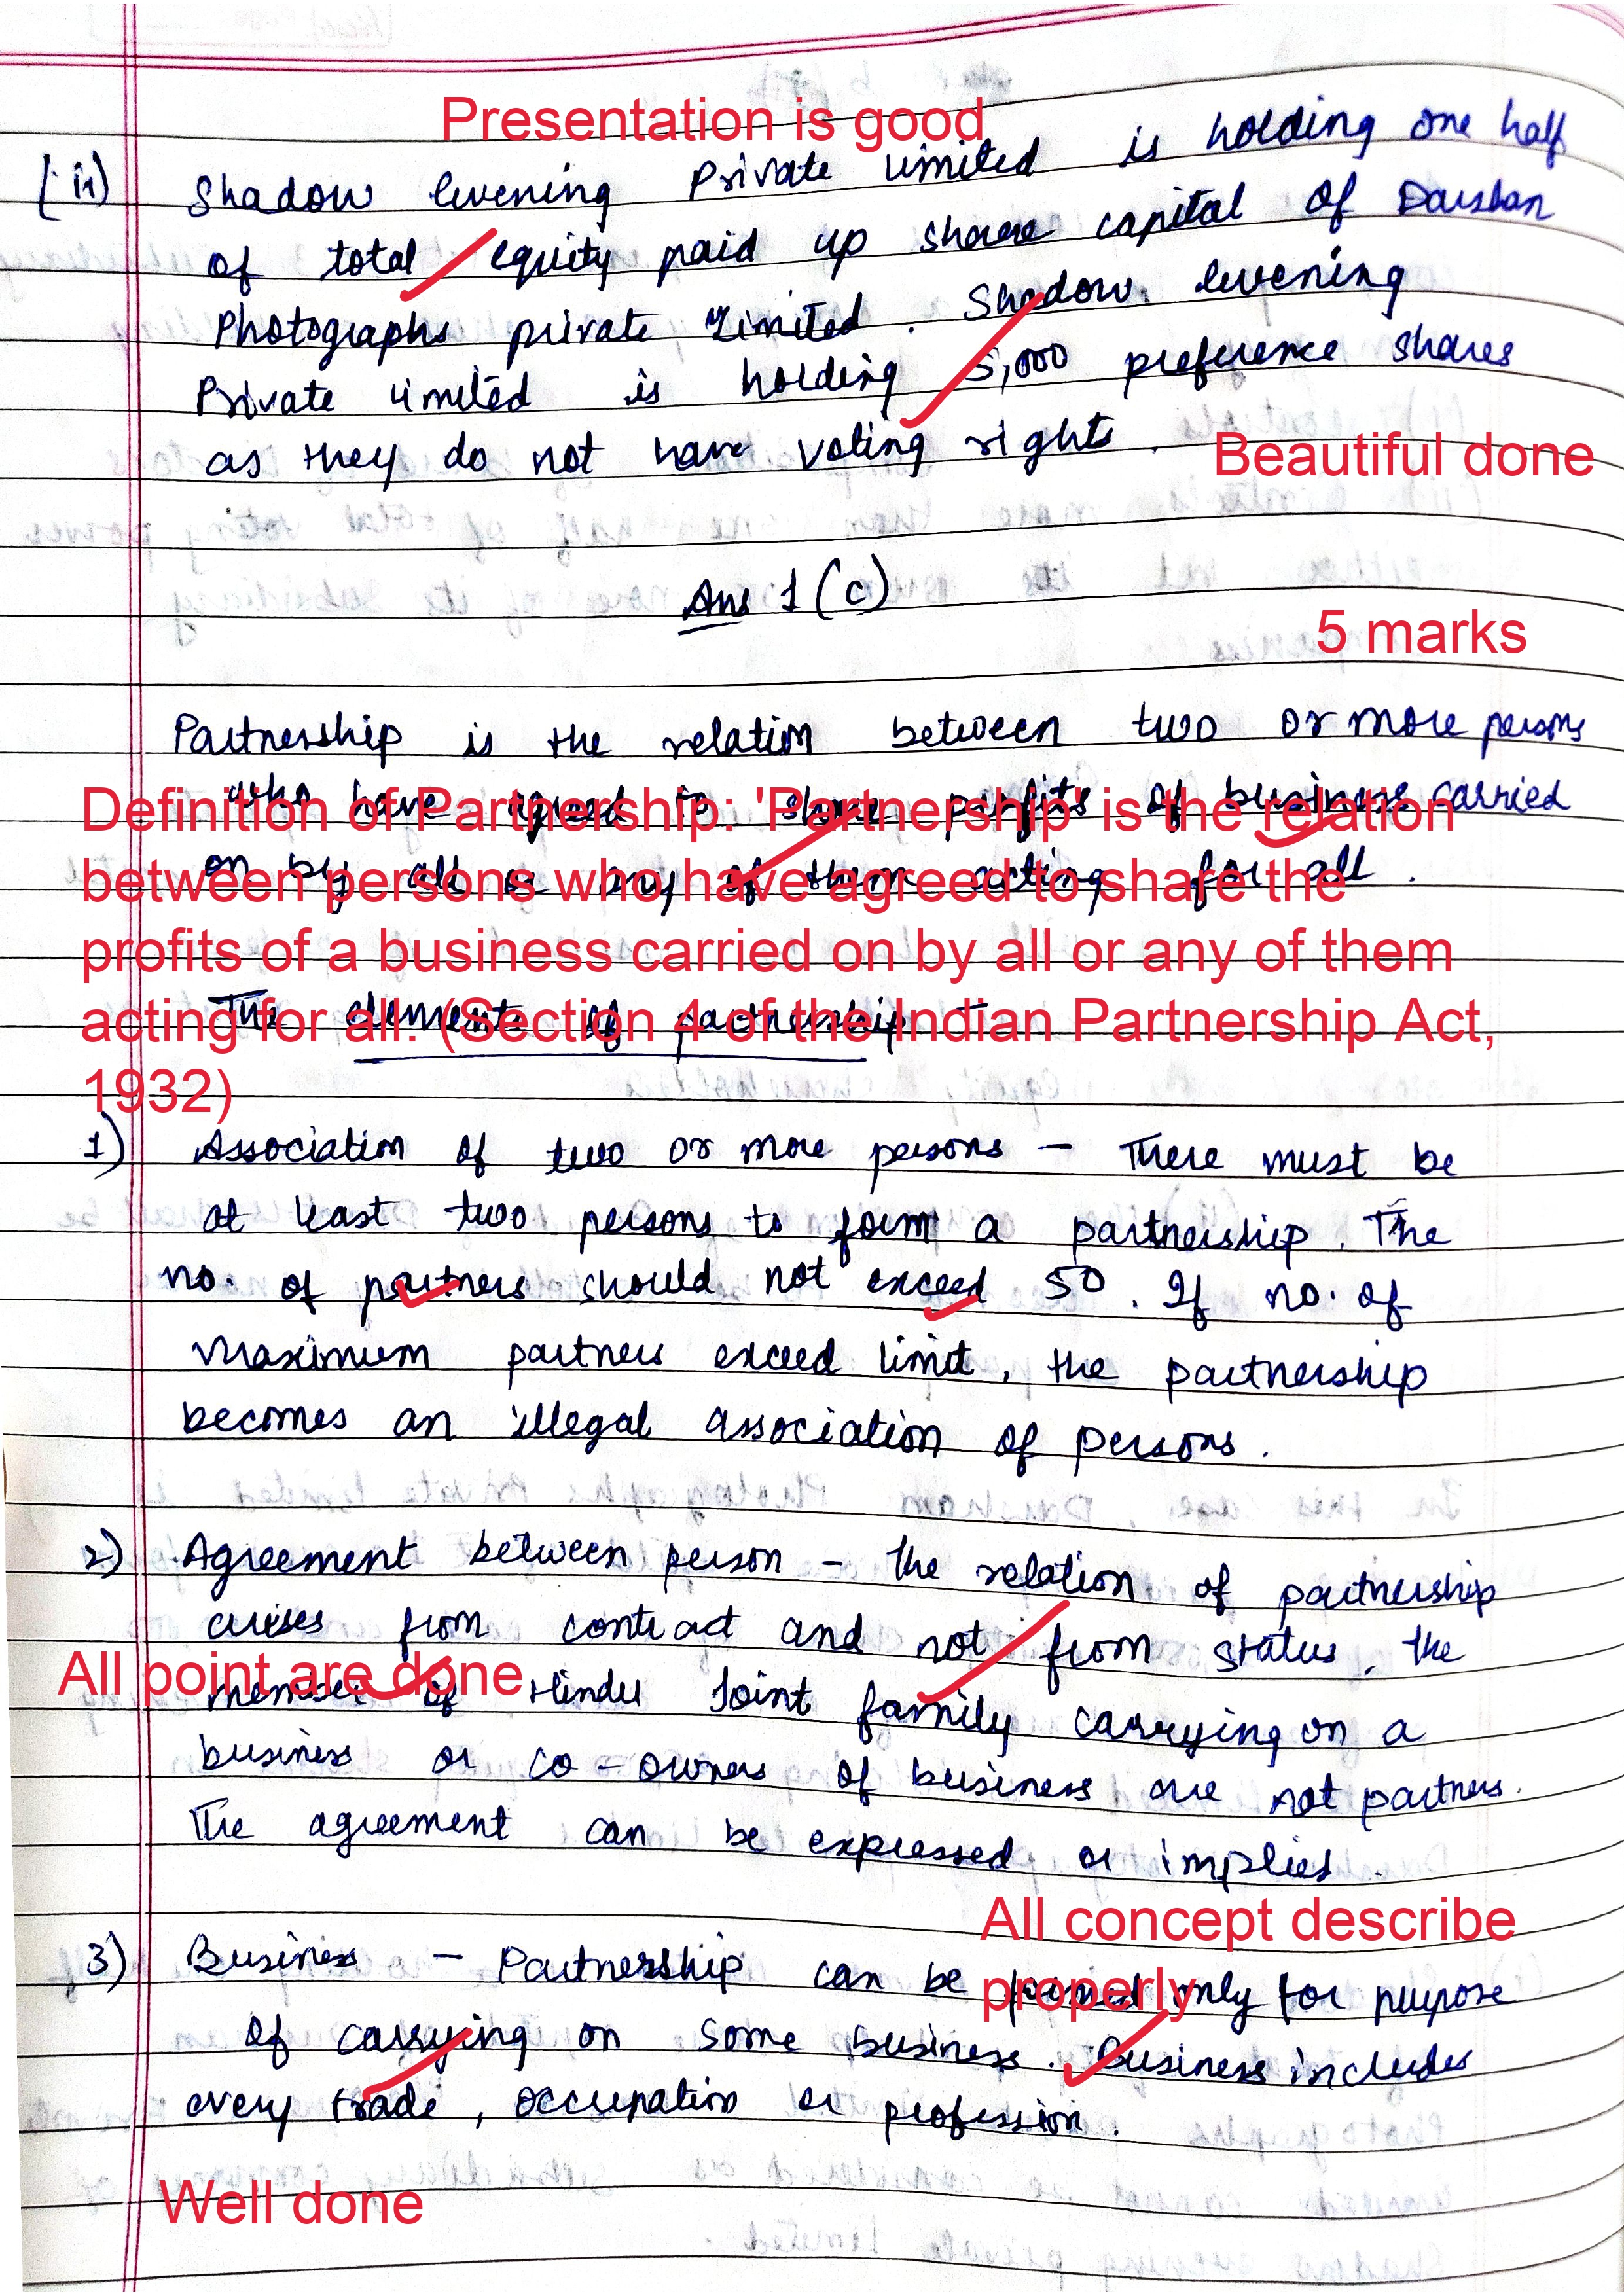 Presentation is good
(ii) Shadow evening Private limited is holding one half
of total equity paid up share capital of Darshan
Photographs private Limited. Shadow evening
Private limited is holding 5,000 preference shares
as they do not have voting rights.
Beautiful done
Ans 1 (c)
5 marks
Partnership is the relation between two or more persons
who have agreed to share profits of business carried
on by all or any of them acting for all.
Definition of Partnership: 'Partnership' is the relation
between persons who have agreed to share the
profits of a business carried on by all or any of them
acting for all. (Section 4 of the Indian Partnership Act,
1932)
The elements of partnership
1) Association of two or more persons - There must be
at least two persons to form a partnership. The
no. of partners should not exceed 50. If no. of
maximum partners exceed limit, the partnership
becomes an illegal association of persons.
2) Agreement between person - the relation of partnership
arises from contract and not from status. the
All point are done
member of Hindu Joint family carrying on a
business or co-owners of business are not partners.
The agreement can be expressed or implied.
All concept describe
properly
3) Business - Partnership can be formed only for purpose
of carrying on some business. Business includes
every trade, occupation or profession.
Well done